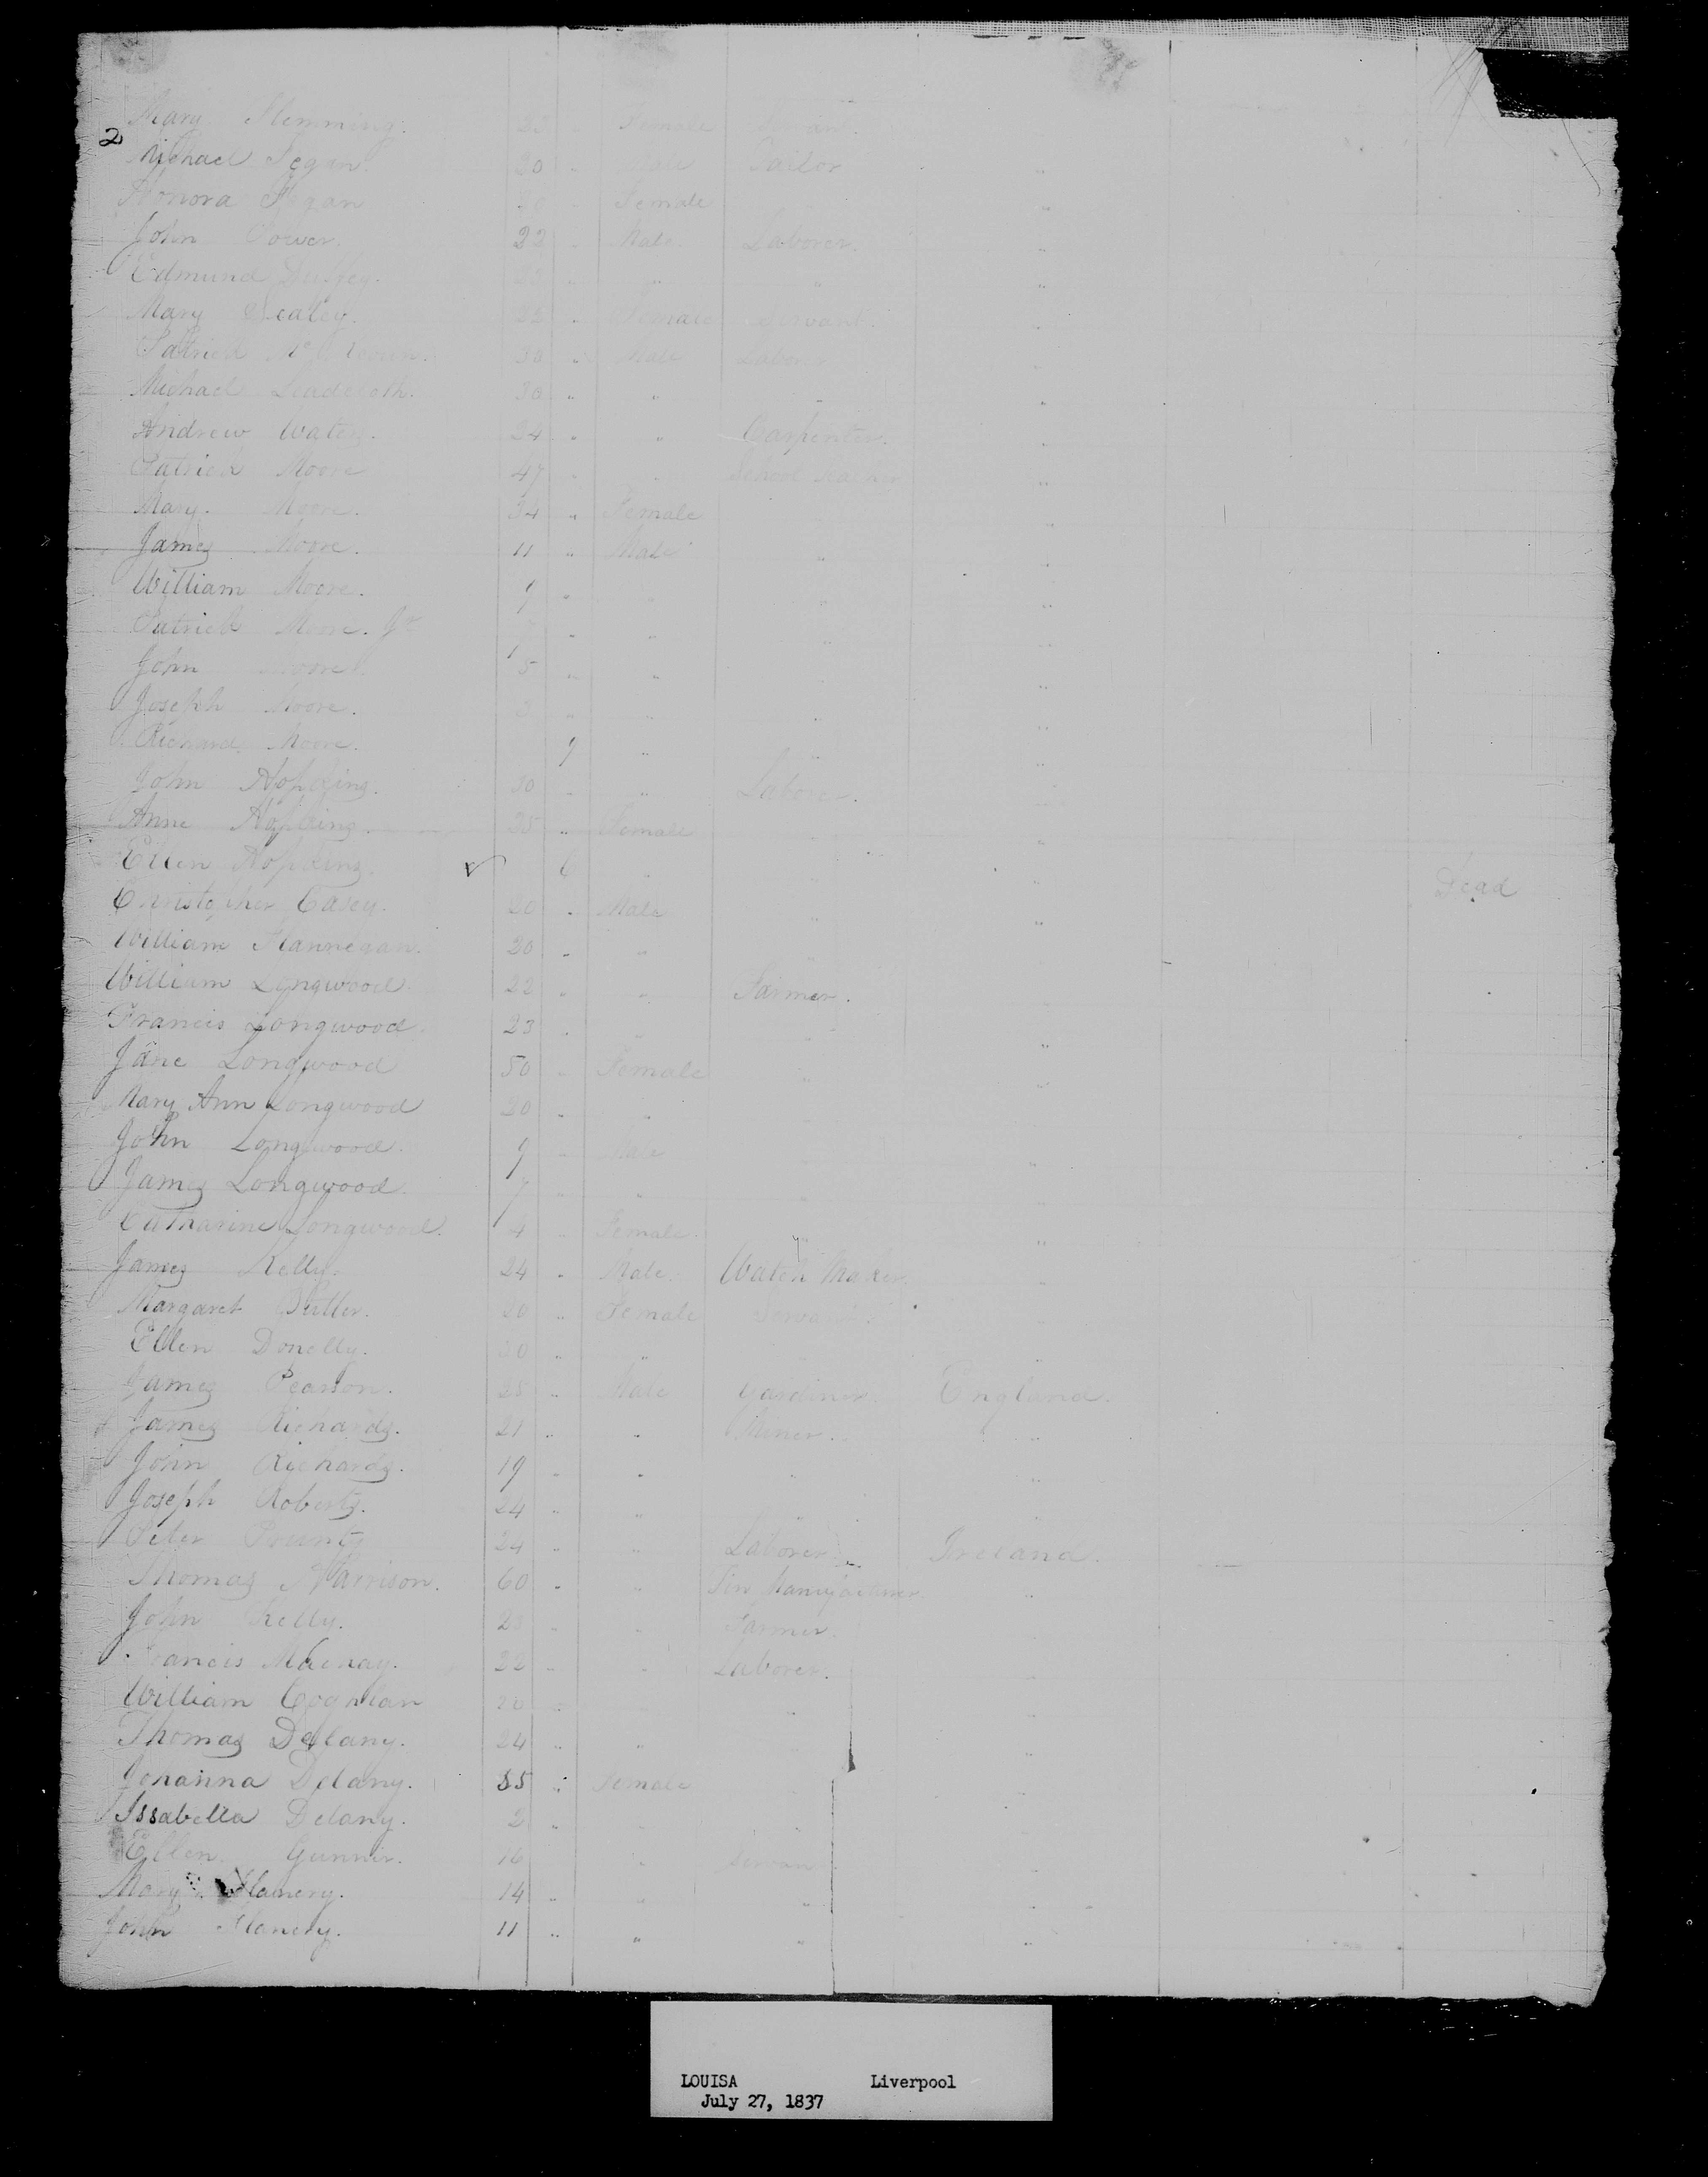 2
Mary Flemming. 23 " Female Servant
Michael Fegan. 30 " Male Tailor "
Honora Fegan 30 " Female "
John Power. 22 " Male. Laborer. "
Edmund 25 " " " "
Mary Healey. 22 " Female Servant. "
Patrick 30 " Male Laborer
Michael 30 " " " "
Andrew Waters. 24 " " Carpenter. "
Patrick Moore 47 " School "
Mary. Moore. 34 " Female "
James Moore. 11 " Male " "
William Moore. 9 " " " "
Patrick Moore. Jr 7 " " " "
John Moore. 5 " " "
Joseph Moore. 3 " " " "
Richard Moore. 9 " "
John Hopkins. 30 " " Laborer.
Anne Hopkins. 35 " Female "
Ellen Hopkins. 6 " " Dead
Christopher Casey. 20 " Male " "
William Flannegan. 30 " "
William Longwood 22 " " Farmer.
Francis Longwood. 23 " " "
Jane Longwood 50 " Female " "
Mary Ann Longwood 20 " "
John Longwood. 9 " Male "
James Longwood. 7 " " " "
Catharine Longwood. 4 " Female. " "
James Kelly. 24 " Male. Watch Maker. "
Margaret Butler. 20 " Female Servant. "
Ellen Donelly. 20 " " "
James Pearson. 28 " Male Gardiner. England.
James Richards. 21 " " Miner. "
John Richards. 19 " " " "
Joseph Roberts. 24 " "
Peter 24 " " Laborer Ireland.
Thomas Harrison. 60 " " Tin Manufacturer "
John Kelly. 23 " " Farmer.
Francis Mackay. 22 " " Laborer. "
William Coghlan " " "
Thomas Delany. 24 " " "
Johanna Delany. 35 " Female "
Issabella Delany. 2 " " " "
Ellen Gunnir. 16 " Servant "
Mary Flanery. 14 " " " "
John Flanery. 11 " " " "
LOUISA Liverpool
July 27, 1837